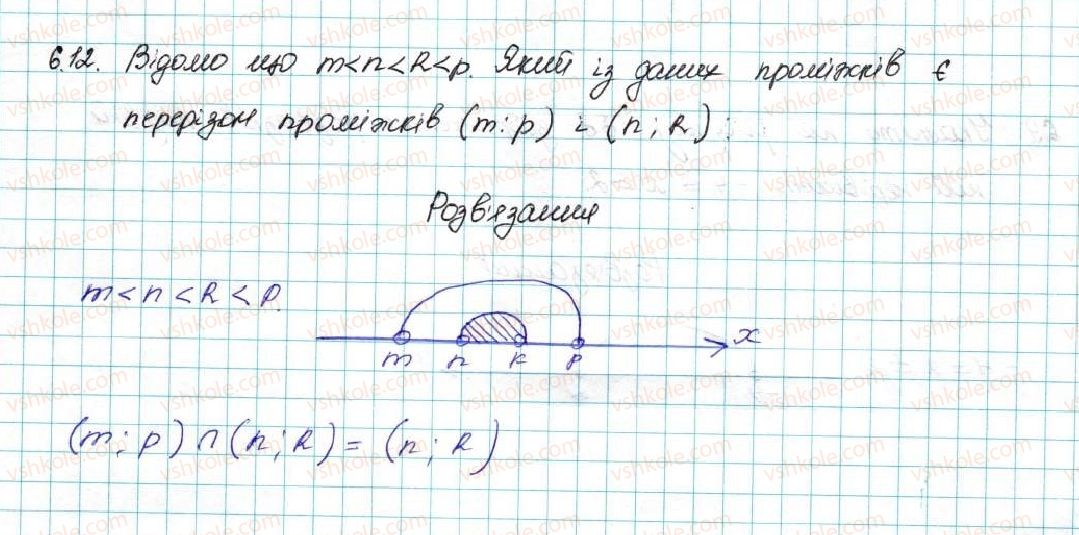 6.12. Відомо що m<n<k<p. Який із даних проміжків є
перерізом проміжків (m:p) і (n;k):
Розв'язання
m<n<k<p.
m n k p x
(m;p)∩(n;k)=(n;k)